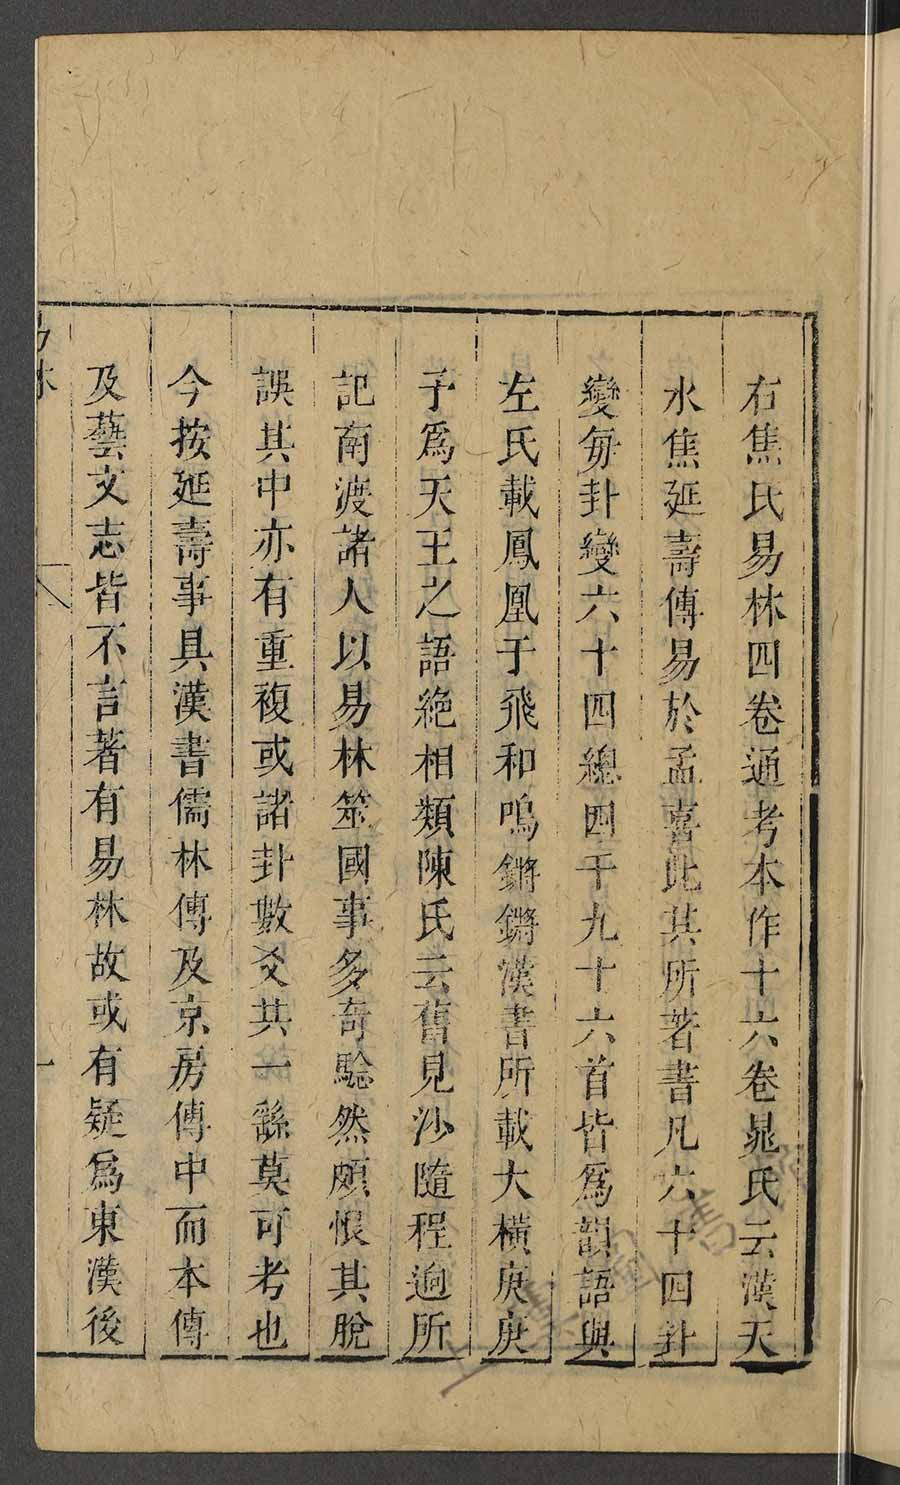 右焦氏易林四卷通考本作十六卷晁氏云漢天
水焦延壽傳易於孟喜此其所著書凡六十四卦
變每卦變六十四總四千九十六首皆爲韻語與
左氏載鳳凰于飛和鳴鏘鏘漢書所載大橫庚庚
予爲天王之語絶相類陳氏云舊見沙隨程迥所
記南渡諸人以易林筮國事多奇驗然頗恨其脫
誤其中亦有重複或諸卦數爻共一繇莫可考也
今按延壽事具漢書儒林傳及京房傳中而本傳
及藝文志皆不言著有易林故或有疑爲東漢後
易林
一